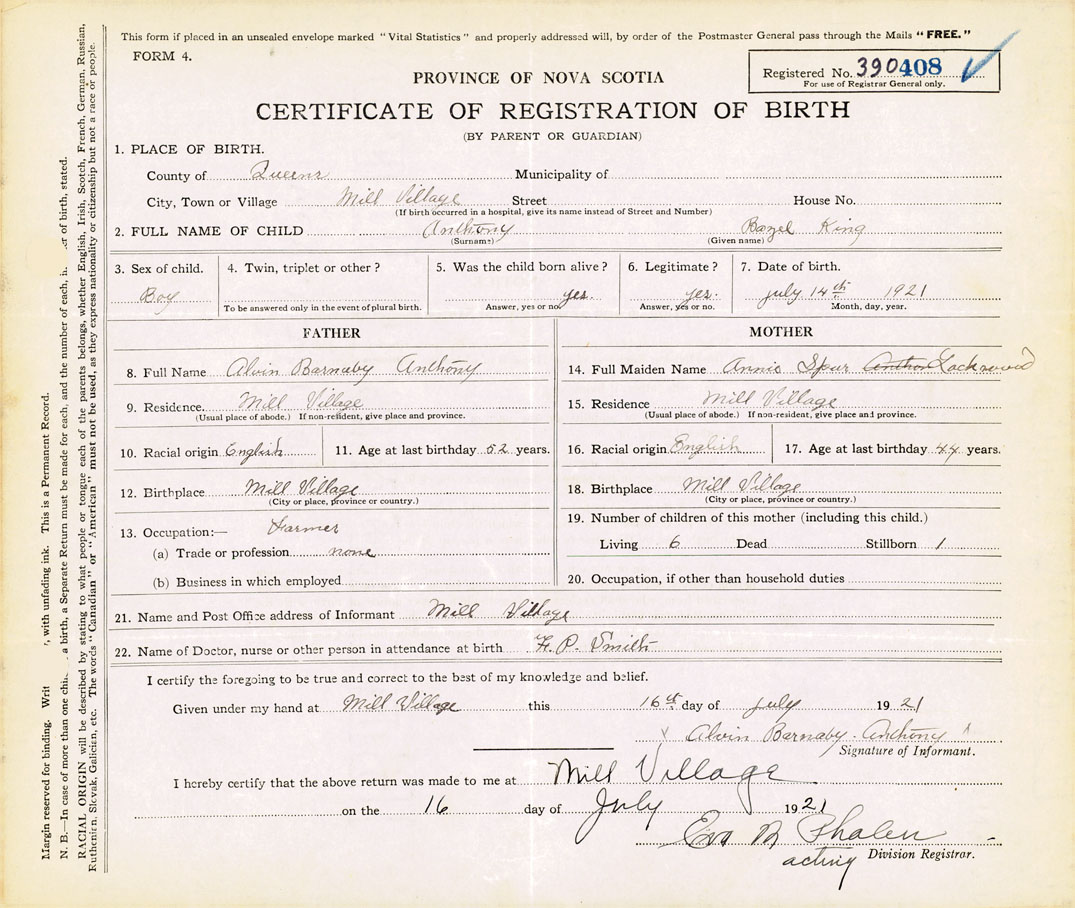 This form if placed in an unsealed envelope marked "Vital Statistics" and properly addressed will, by order of the Postmaster General pass through the Mails "FREE."
FORM 4.
Registered No. 390408
For use of Registrar General only.
PROVINCE OF NOVA SCOTIA
CERTIFICATE OF REGISTRATION OF BIRTH
(BY PARENT OR GUARDIAN)
1. PLACE OF BIRTH.
County of Queens Municipality of
City, Town or Village Mill Village Street House No.
(If birth occurred in a hospital, give its name instead of Street and Number)
2. FULL NAME OF CHILD Anthony Bazel King
(Surname) (Given name)
3. Sex of child. Boy
4. Twin, triplet or other?
To be answered only in the event of plural birth.
5. Was the child born alive? yes.
Answer, yes or no
6. Legitimate? yes.
Answer, yes or no.
7. Date of birth.
july 14th 1921
Month, day, year.
FATHER
8. Full Name Alvin Barnaby Anthony
9. Residence. Mill Village
(Usual place of abode.) If non-resident, give place and province.
10. Racial origin English 11. Age at last birthday 52 years.
12. Birthplace Mill Village
(City or place, province or country.)
13. Occupation:— Farmer
(a) Trade or profession none
(b) Business in which employed
MOTHER
14. Full Maiden Name Annie Spur Anthon
15. Residence Mill Village
(Usual place of abode.) If non-resident, give place and province.
16. Racial origin English 17. Age at last birthday 44 years.
18. Birthplace Mill Village
(City or place, province or country.)
19. Number of children of this mother (including this child.)
Living 6 Dead Stillborn 1
20. Occupation, if other than household duties
21. Name and Post Office address of Informant Mill Village
22. Name of Doctor, nurse or other person in attendance at birth F. P. Smith
I certify the foregoing to be true and correct to the best of my knowledge and belief.
Given under my hand at Mill Village this 16th day of july 1921
Alvin Barnaby Anthony
Signature of Informant.
I hereby certify that the above return was made to me at Mill Village
on the 16 day of July 1921
Eva M Phalen
acting Division Registrar.
Margin reserved for binding. Writ , with unfading ink. This is a Permanent Record.
N. B.—In case of more than one chi a birth, a Separate Return must be made for each, and the number of each, i er of birth, stated.
RACIAL ORIGIN will be described by stating to what people or tongue each of the parents belongs, whether English, Irish, Scotch, French, German, Russian,
Ruthenian, Slovak, Galician, etc. The words "Canadian" or "American" must not be used, as they express nationality or citizenship but not a race or people.